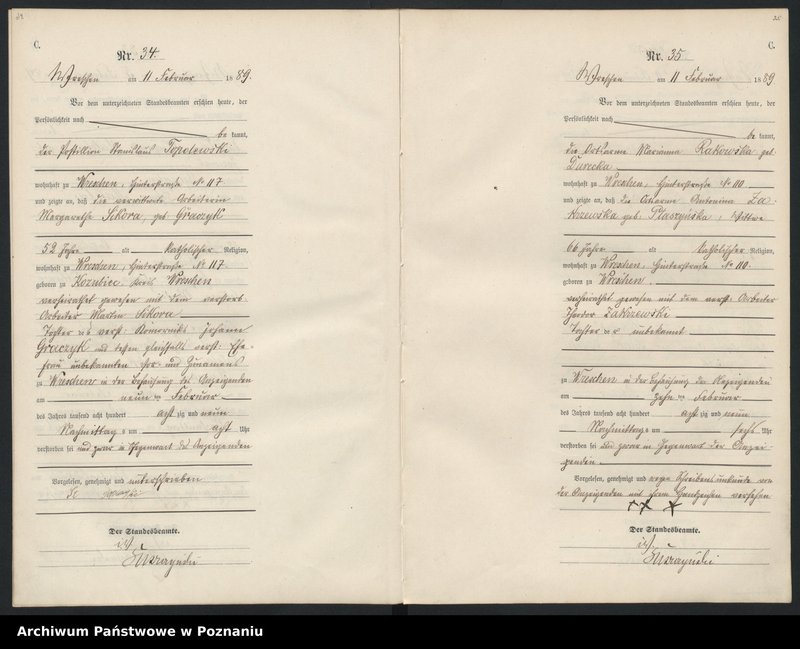 C.
Nr. 34.
Wreschen am 11 Februar 1889.
Vor dem unterzeichneten Standesbeamten erschien heute, der
Persönlichkeit nach
be kannt,
der Postillion Stanislaus Topolewski
wohnhaft zu Wreschen, Hinterstraße No 117
und zeigte an, daß die verwittwete Arbeiterin
Margarethe Sikora, geb. Graczyk
52 Jahre alt katholischer Religion,
wohnhaft zu Wreschen, Hinterstraße No 117
geboren zu Kozubiec Kreis Wreschen
verheirathet gewesen mit dem verstorb.
Arbeiter Martin Sikora
Tochter des verst. Komorniks Johann
Graczyk und dessen gleichfalls verst. Ehe-
frau unbekannten Vor- und Zunamens
zu Wreschen in der Behausung des Anzeigenden
am neun ten Februar
des Jahres tausend acht hundert acht zig und neun
Nachmittag s um acht Uhr
verstorben sei und zwar in Gegenwart des Anzeigenden
Vorgelesen, genehmigt und unterschrieben
Der Standesbeamte.
35
C.
Nr. 35
Wreschen am 11 Februar 1889
Vor dem unterzeichneten Standesbeamten erschien heute, der
Persönlichkeit nach
be kannt,
die Ortsarme Marianna Rakowska geb.
Durecka
wohnhaft zu Wreschen, Hinterstraße No 110
und zeigte an, daß die Ortsarme Antonina Za-
krzewska geb. Ptaszyńska, Wittwe
66 Jahre alt katholischer Religion,
wohnhaft zu Wreschen, Hinterstraße No 110.
geboren zu Wreschen
verheirathet gewesen mit dem verst. Arbeiter
Theodor Zakrzewski
Tochter der unbekannt
zu Wreschen in der Behausung der Anzeigenden
am zehn ten Februar
des Jahres tausend acht hundert acht zig und neun
Nachmittags um sechs Uhr
verstorben sei und zwar in Gegenwart der Anzei-
genden
Vorgelesen, genehmigt und wegen Schreibensunkunde von
der Anzeigenden mit ihrem Handzeichen versehen
+++
Der Standesbeamte.
Archiwum Państwowe w Poznaniu